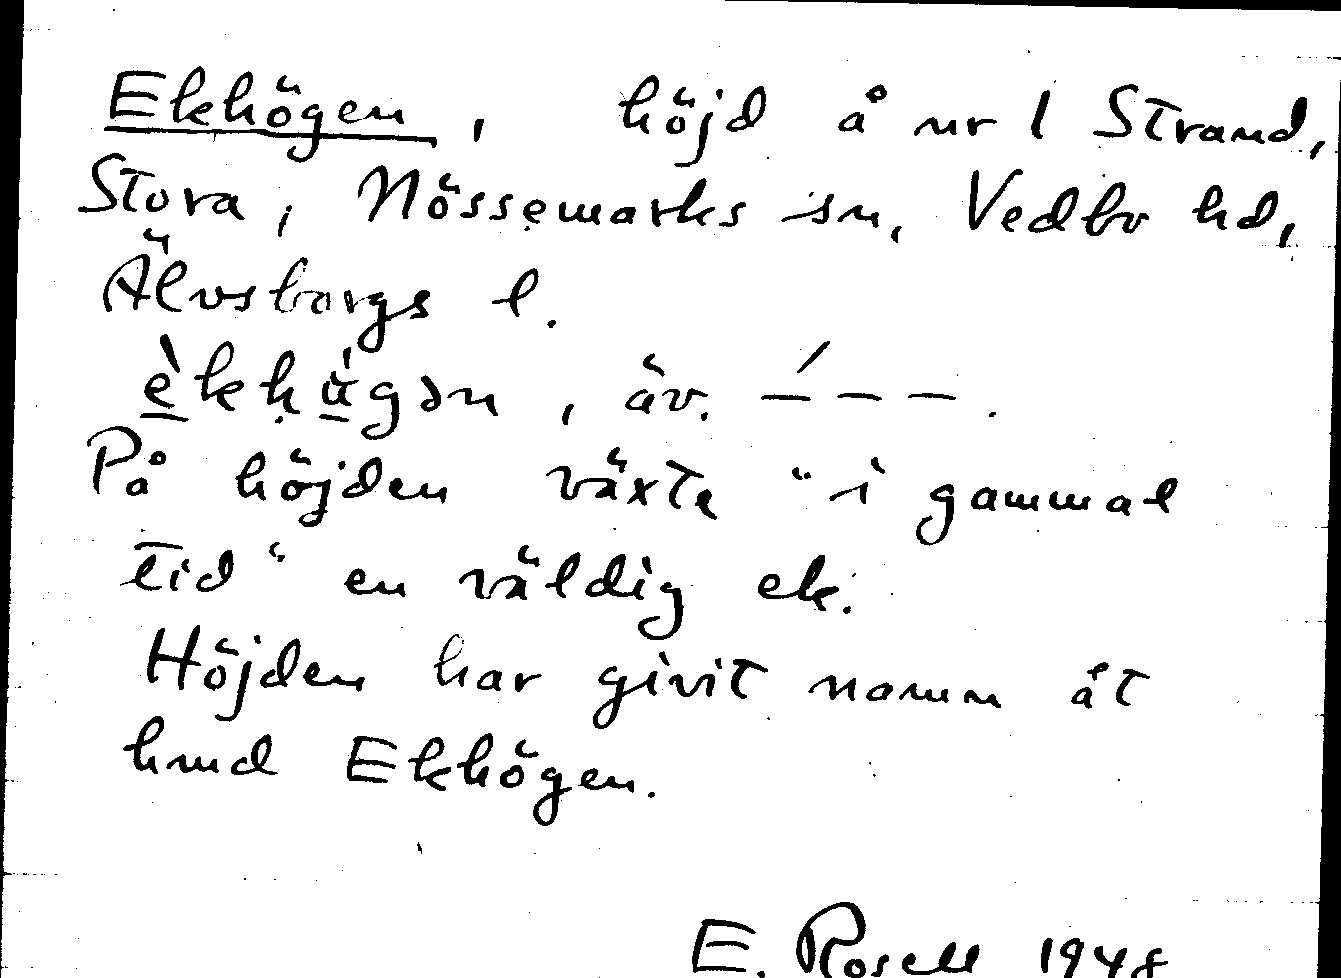 Ekhögen, höjd å nr 1 Strand,
Stora, Nössemarks sn, Vedbo hd,
Älvsborgs l.
èkhùgən, äv. ⸍– – –.
På höjden växte "i gammal
tid" en väldig ek.
Höjden har givit namn åt
hmd Ekhögen.
E. Rosell 1948